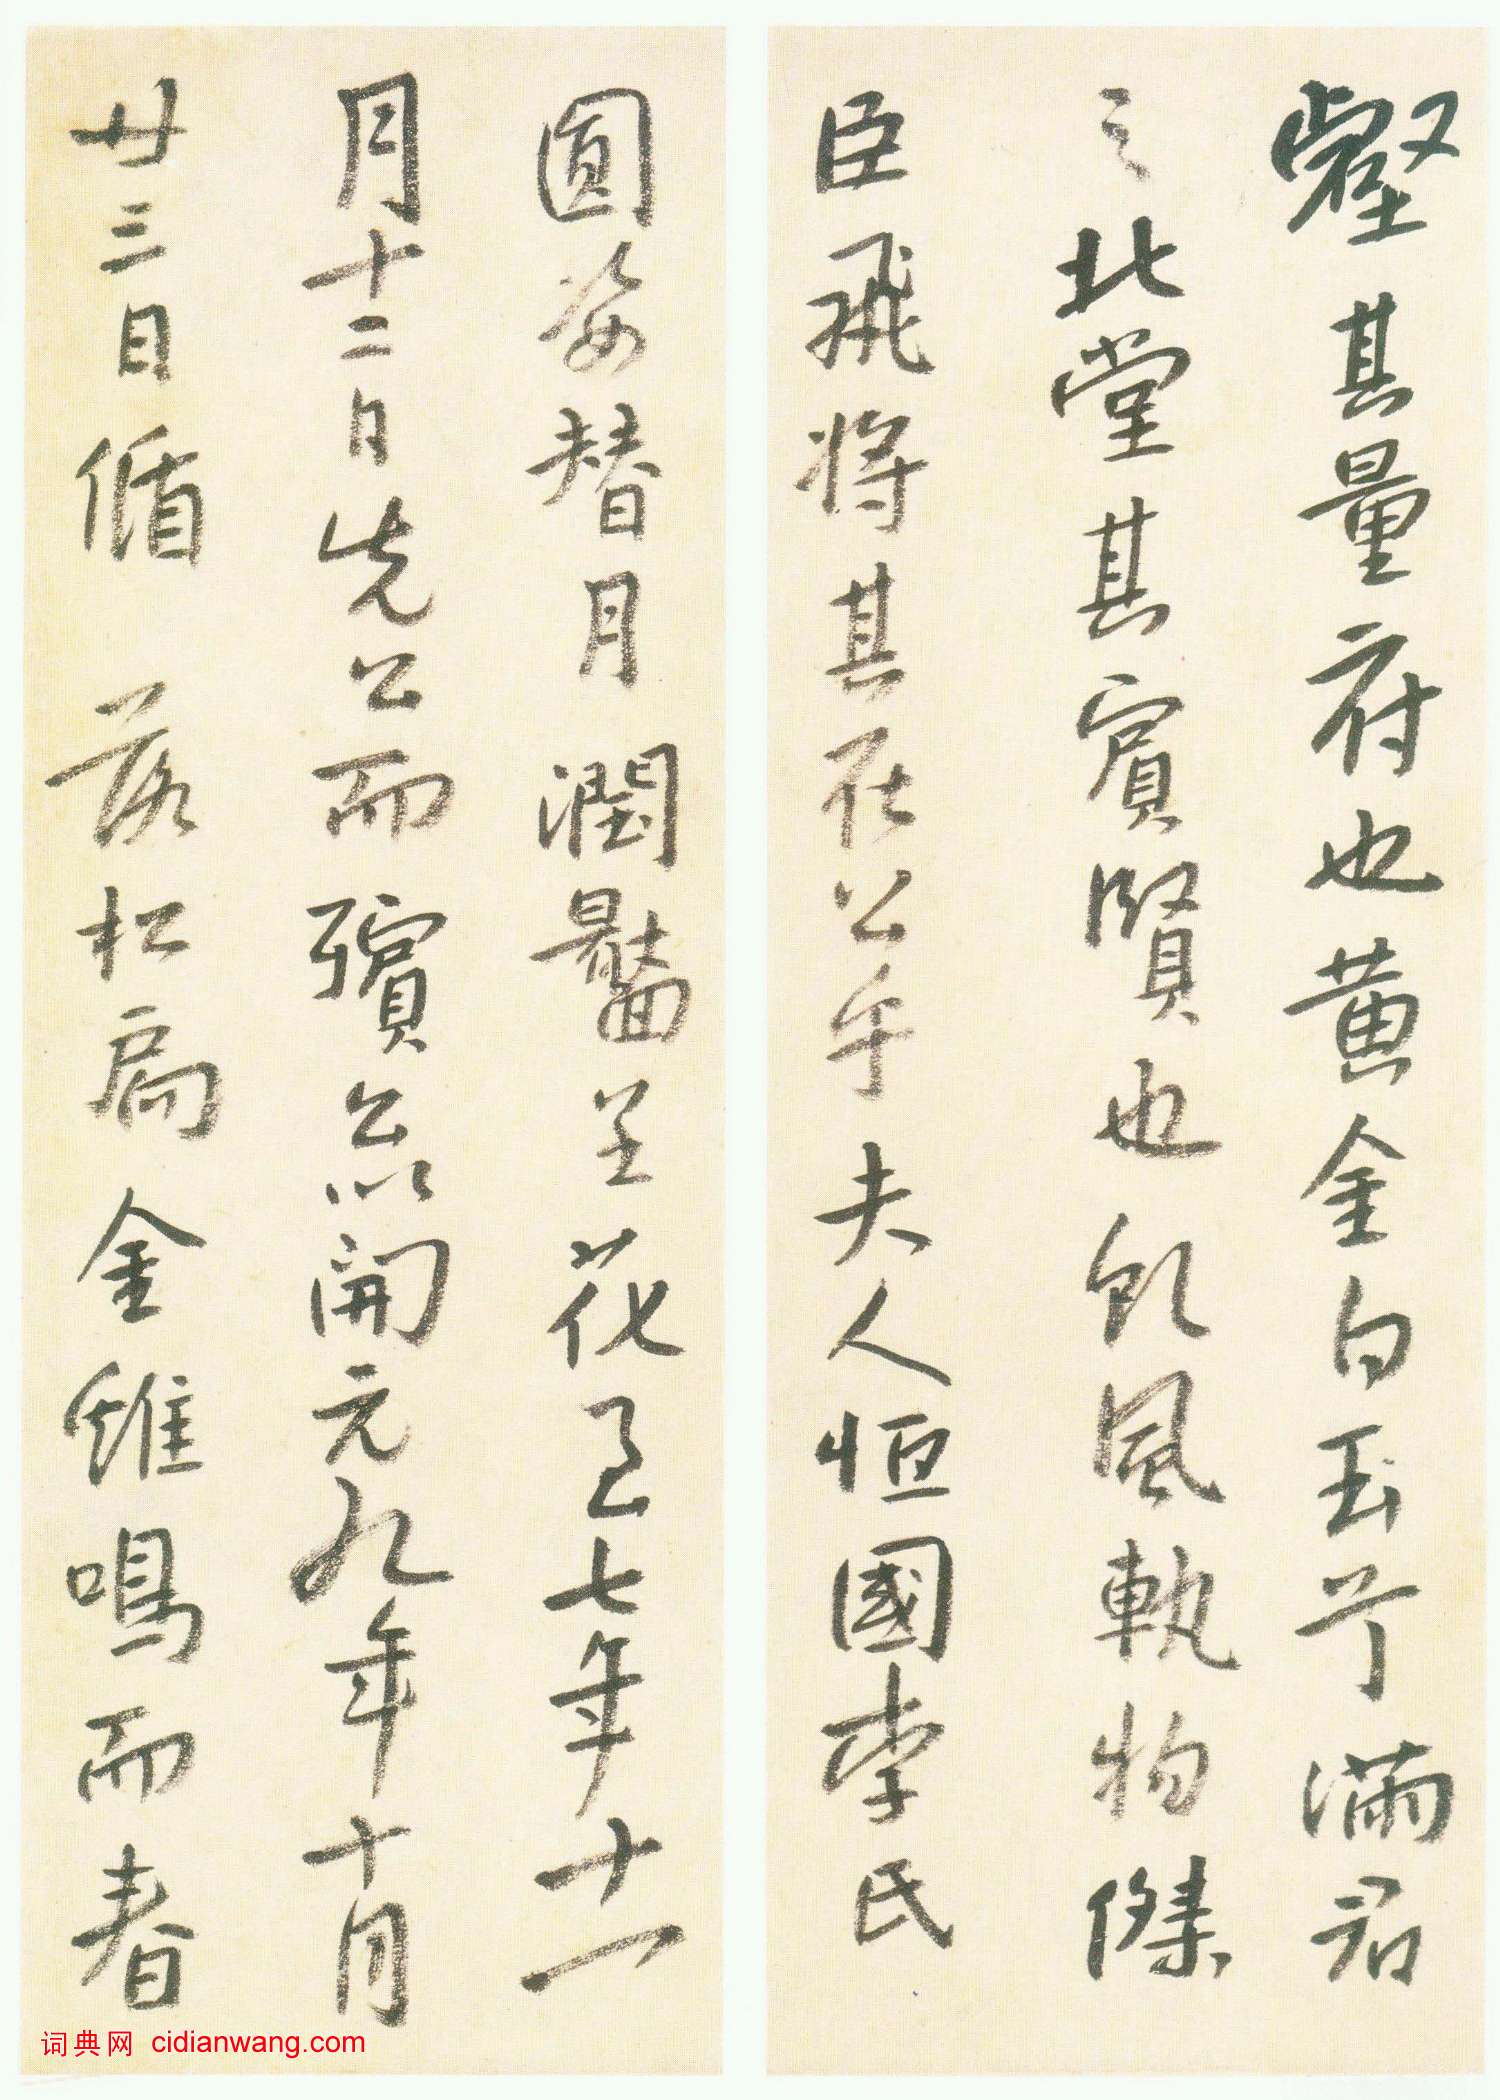 壑其量府也黄金白玉亍满君
之北堂其賓賢也飲風執物傑
臣飛將其在公乎夫人恒國李氏
圆姿替月潤臉呈花已七年十一
月十二日先公而殯亦開元九年十月
廿三日循落松扃金雉鳴而春
词典网 cidianwang.com